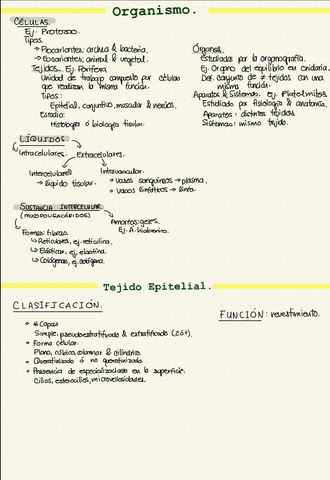 Organismo.
CÉLULAS.
Ej. Protozoo.
Tipos.
→ Procariontes: archea & bacteria.
→ Eucariontes: animal & vegetal.
Tejidos. Ej. Porifera
Unidad de trabajo compuesto por células
que realizan la misma función.
Tipos:
Epitelial, conjuntivo, muscular & nervios.
Estudio:
Histología ó biología tisular.
Órganos.
Estudiados por la organografía.
Ej. Órgano del equilibrio en cnidaria.
Def. Conjunto de ≠ tejidos con una
misma función.
Aparatos & Sistemas. ej. Platelmitos
Estudiado por fisiología & anatomía.
Aparatos: distintos tejidos
Sistemas: mismo tejido.
LÍQUIDOS.
Intracelulares. Extracelulares.
Intercelulares Intravascular.
→ líquido tisular.
• Vasos sanguíneos → plasma.
• Vasos linfáticos → linfa.
SUSTANCIA INTERCELULAR.
(MUCOPOLISACÁRIDOS)
Formes: fibras.
↳ Reticulares, ej. reticulina.
↳ Elásticas, ej. elastina.
↳ Colágenas, ej. colágena.
Amorfas: geles.
Ej. A. hialurónico.
Tejido Epitelial.
CLASIFICACIÓN.
• # Capas
Simple, pseudoestratificado & estratificado (2 ó +).
• Forma celular.
Plano, cúbico, columnar & cilíndrico.
• Queratinizado ó no queratinizado
• Presencia de especializaciones en la superficie.
Cilios, estereocilios, microvellosidades.
FUNCIÓN: revestimiento.